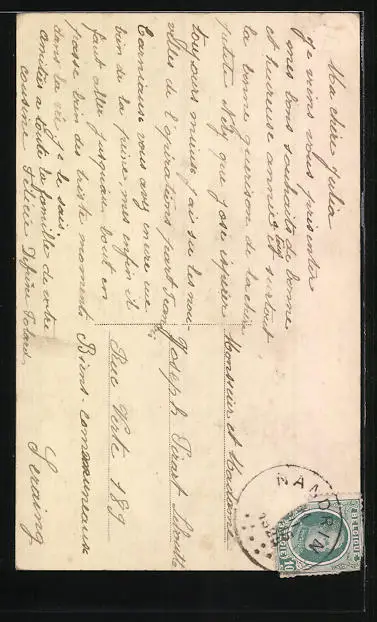 Ma chère Julia
Je viens vous présenter
mes bons souhaits de bonne
et heureuse année et surtout
la bonne guérison de la chère
petite Nelly que j'ose espérer
toujours mieux j'ai su les nou-
velles de l'opérations part Jean
Corniaux vous avez encore eue
bien de la peine, mes enfin il
faut aller jusqu'au bout on
passe bien des triste moments
dans la vie je le sais
amitiés a toute la famille de votre
cousine Félicie
Monsieur et Madame
Joseph Pirart
Rue Verte 189
Biens-communeaux
Seraing
NANDRIN
BELGIQUE
10